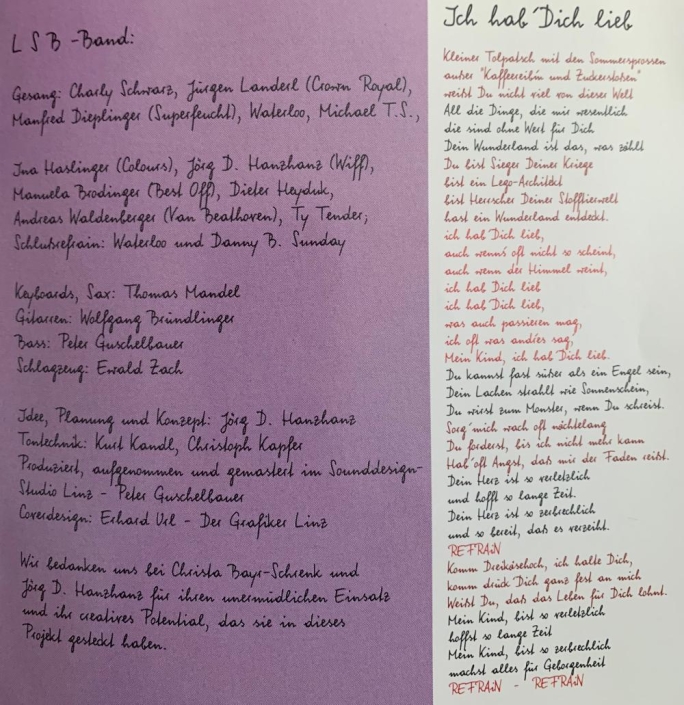 LSB-Band:
Gesang: Charly Schwarz, Jürgen Landerl (Crown Royal),
Manfred Dieplinger (Superfeucht), Waterloo, Michael T.S.,
Ina Haslinger (Colours), Jörg D. Hanzhanz (Wiff),
Manuela Brodinger (Best Off), Dieter Heyduk,
Andreas Waldenberger (Van Beathoven), Ty Tender;
Schlußrefrain: Waterloo und Danny B. Sunday
Keyboards, Sax: Thomas Mandel
Gitarren: Wolfgang Bründlinger
Bass: Peter Guschelbauer
Schlagzeug: Ewald Zach
Idee, Planung und Konzept: Jörg D. Hanzhanz
Tontechnik: Kurt Kandl, Christoph Kapfer
Produziert, aufgenommen und gemastert im Sounddesign-
Studio Linz - Peter Guschelbauer
Coverdesign: Erhard Url - Der Grafiker Linz
Wir bedanken uns bei Christa Bayr-Schrenk und
Jörg D. Hanzhanz für ihren unermüdlichen Einsatz
und ihr creatives Potential, das sie in dieses
Projekt gesteckt haben.
Ich hab' Dich lieb
Kleiner Tolpatsch mit den Sommersprossen
außer "Kaffeereib'm und Zuckerstoßen"
weißt Du nicht viel von dieser Welt
All die Dinge, die mir wesentlich
die sind ohne Wert für Dich
Dein Wunderland ist das, was zählt
Du bist Sieger Deiner Kriege
bist ein Lego-Architekt
bist Herrscher Deiner Stofftierwelt
hast ein Wunderland entdeckt.
ich hab' Dich lieb,
auch wenn's oft nicht so scheint,
auch wenn der Himmel weint,
ich hab' Dich lieb
ich hab' Dich lieb,
was auch passieren mag,
ich oft was and'res sag,
Mein Kind, ich hab' Dich lieb.
Du kannst fast süßer als ein Engel sein,
Dein Lachen strahlt wie Sonnenschein,
Du wirst zum Monster, wenn Du schreist.
Sorg' mich wach oft nächtelang
Du forderst, bis ich nicht mehr kann
Hab' oft Angst, daß mir der Faden reißt.
Dein Herz ist so verletzlich
und hofft so lange Zeit.
Dein Herz ist so zerbrechlich
und so bereit, daß es verzeiht.
REFRAiN
Komm Dreikäsehoch, ich halte Dich,
komm drück Dich ganz fest an mich
Weißt Du, daß das Leben für Dich lohnt.
Mein Kind, bist so verletzlich
hoffst so lange Zeit
Mein Kind, bist so zerbrechlich
machst alles für Geborgenheit
REFRAiN - REFRAiN